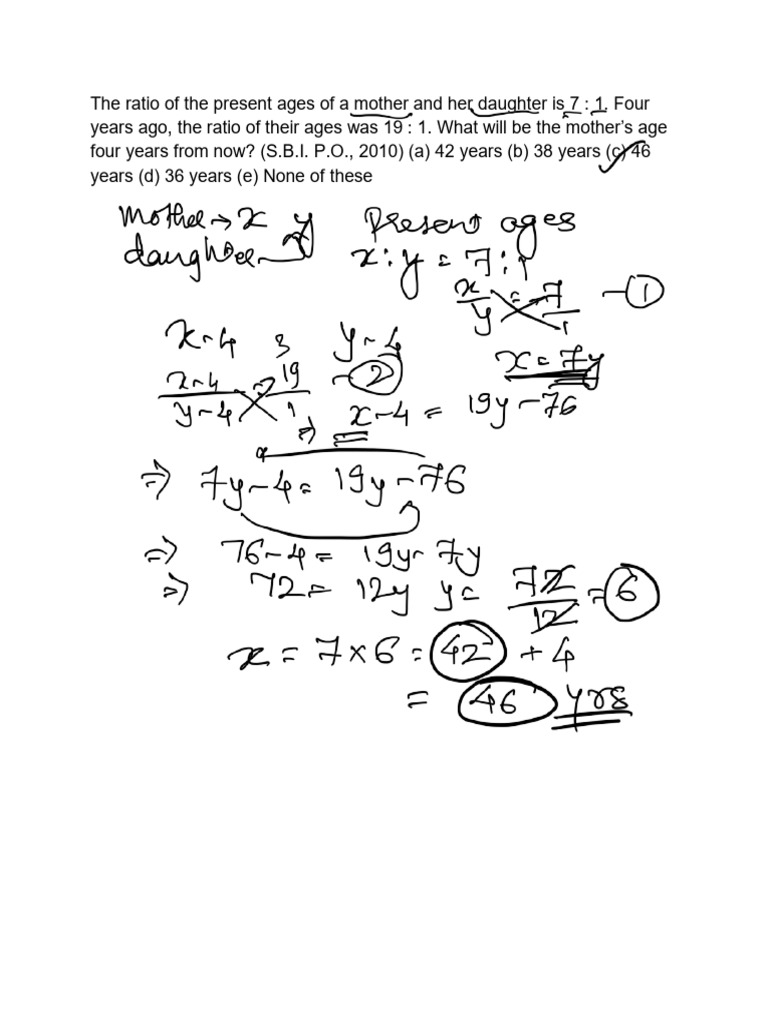 The ratio of the present ages of a mother and her daughter is 7 : 1. Four
years ago, the ratio of their ages was 19 : 1. What will be the mother's age
four years from now? (S.B.I. P.O., 2010) (a) 42 years (b) 38 years (c) 46
years (d) 36 years (e) None of these
Mother → x y Present ages
daughter x : y = 7 : 1
x/y = 7/1 - 1
x-4 ; y-4
x-4/y-4 = 19/1 - 2 x = 7y
⇒ x-4 = 19y-76
⇒ 7y-4 = 19y-76
⇒ 76-4 = 19y-7y
⇒ 72 = 12y y = 72/12 = 6
x = 7×6 = 42 + 4
= 46 yrs